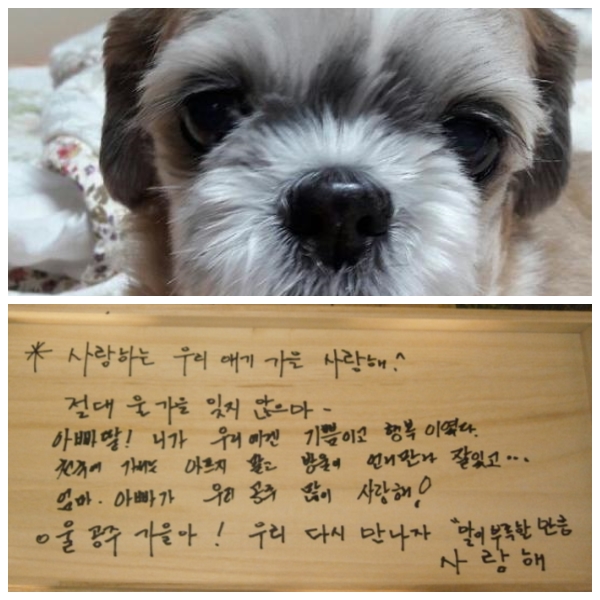 * 사랑하는 우리 애기 가을 사랑해!^
절대 울 가을 잊지 않으마 ~
아빠딸! 니가 우리에겐 기쁨이고 행복이였다.
천국에 가서는 아프지 말고 방울이 언니만나 잘있고...
엄마. 아빠가 우리 공주 많이 사랑해!
○울 공주 가을아! 우리 다시 만나자 "말이 부족할 만큼
사랑해